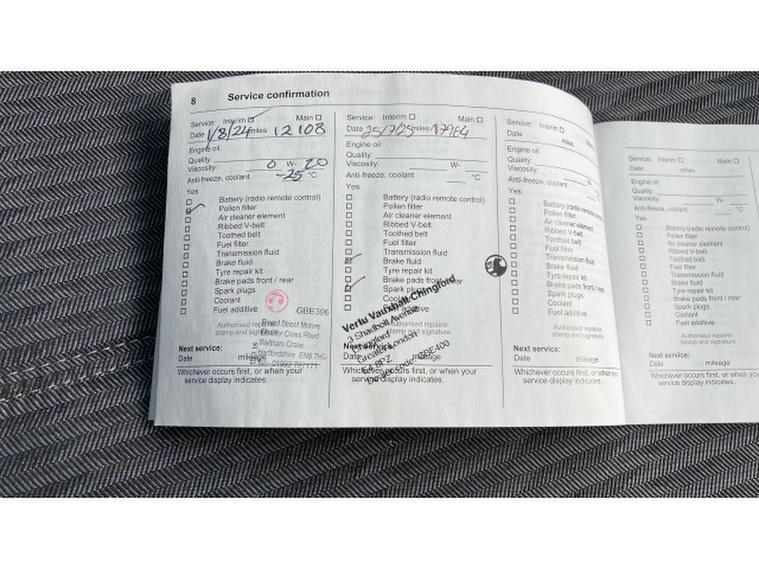 8 Service confirmation
Service: Interim Main
Date 1/8/24 miles 12108
Engine oil
Quality:
Viscosity: 0 W- 20
Anti-freeze, coolant -25 °C
Yes
Battery (radio remote control)
Pollen filter
Air cleaner element
Ribbed V-belt
Toothed belt
Fuel filter
Transmission fluid
Brake fluid
Tyre repair kit
Brake pads front / rear
Spark plugs
Coolant
Fuel additive GBE396
Authorised repairer
stamp and signature
Street Motors
Cross Road
Waltham Cross
Hertfordshire EN8 7HG
Next service:
Date mileage
Whichever occurs first, or when your
service display indicates.
Service: Interim Main
Date 25/7/25 miles 17964
Engine oil
Quality:
Viscosity: W-
Anti-freeze, coolant °C
Yes
Battery (radio remote control)
Pollen filter
Air cleaner element
Ribbed V-belt
Toothed belt
Fuel filter
Transmission fluid
Brake fluid
Tyre repair kit
Brake pads front / rear
Spark plugs
Coolant
Fuel additive
Vertu Vauxhall Chingford
3 Shadbolt Avenue
Chingford
Greater London
E4 8PZ
Authorised repairer
stamp and signature
Next service:
Date mileage
Whichever occurs first, or when your
service display indicates.
Service: Interim
Date miles
Engine oil
Quality:
Viscosity:
Anti-freeze, coolant
Yes
Battery (radio remote
Pollen filter
Air cleaner element
Ribbed V-belt
Toothed belt
Fuel filter
Transmission fluid
Brake fluid
Tyre repair kit
Brake pads front / rear
Spark plugs
Coolant
Fuel additive
Authorised repairer
stamp and signature
Next service:
Date mileage
Whichever occurs first, or when your
service display indicates.
Service: Interim Main
Date miles
Engine oil
Quality:
Viscosity: W-
Anti-freeze, coolant °C
Yes
Battery (radio remote control)
Pollen filter
Air cleaner element
Ribbed V-belt
Toothed belt
Fuel filter
Transmission fluid
Brake fluid
Tyre repair kit
Brake pads front / rear
Spark plugs
Coolant
Fuel additive
Authorised repairer
stamp and signature
Next service:
Date mileage
Whichever occurs first, or when your
service display indicates.